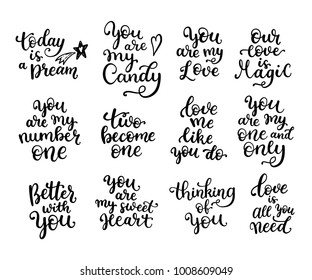 today
is
a
Dream
You
are
my
Candy
You
are my
Love
Our
love
is
Magic
You
are my
number
one
two
become
one
love
me
like
you do
You
are my
one and
only
Better
with
You
You
are
my sweet
Heart
thinking
of
You
Love
is
all you
Need
shutterstock.com · 1008609049